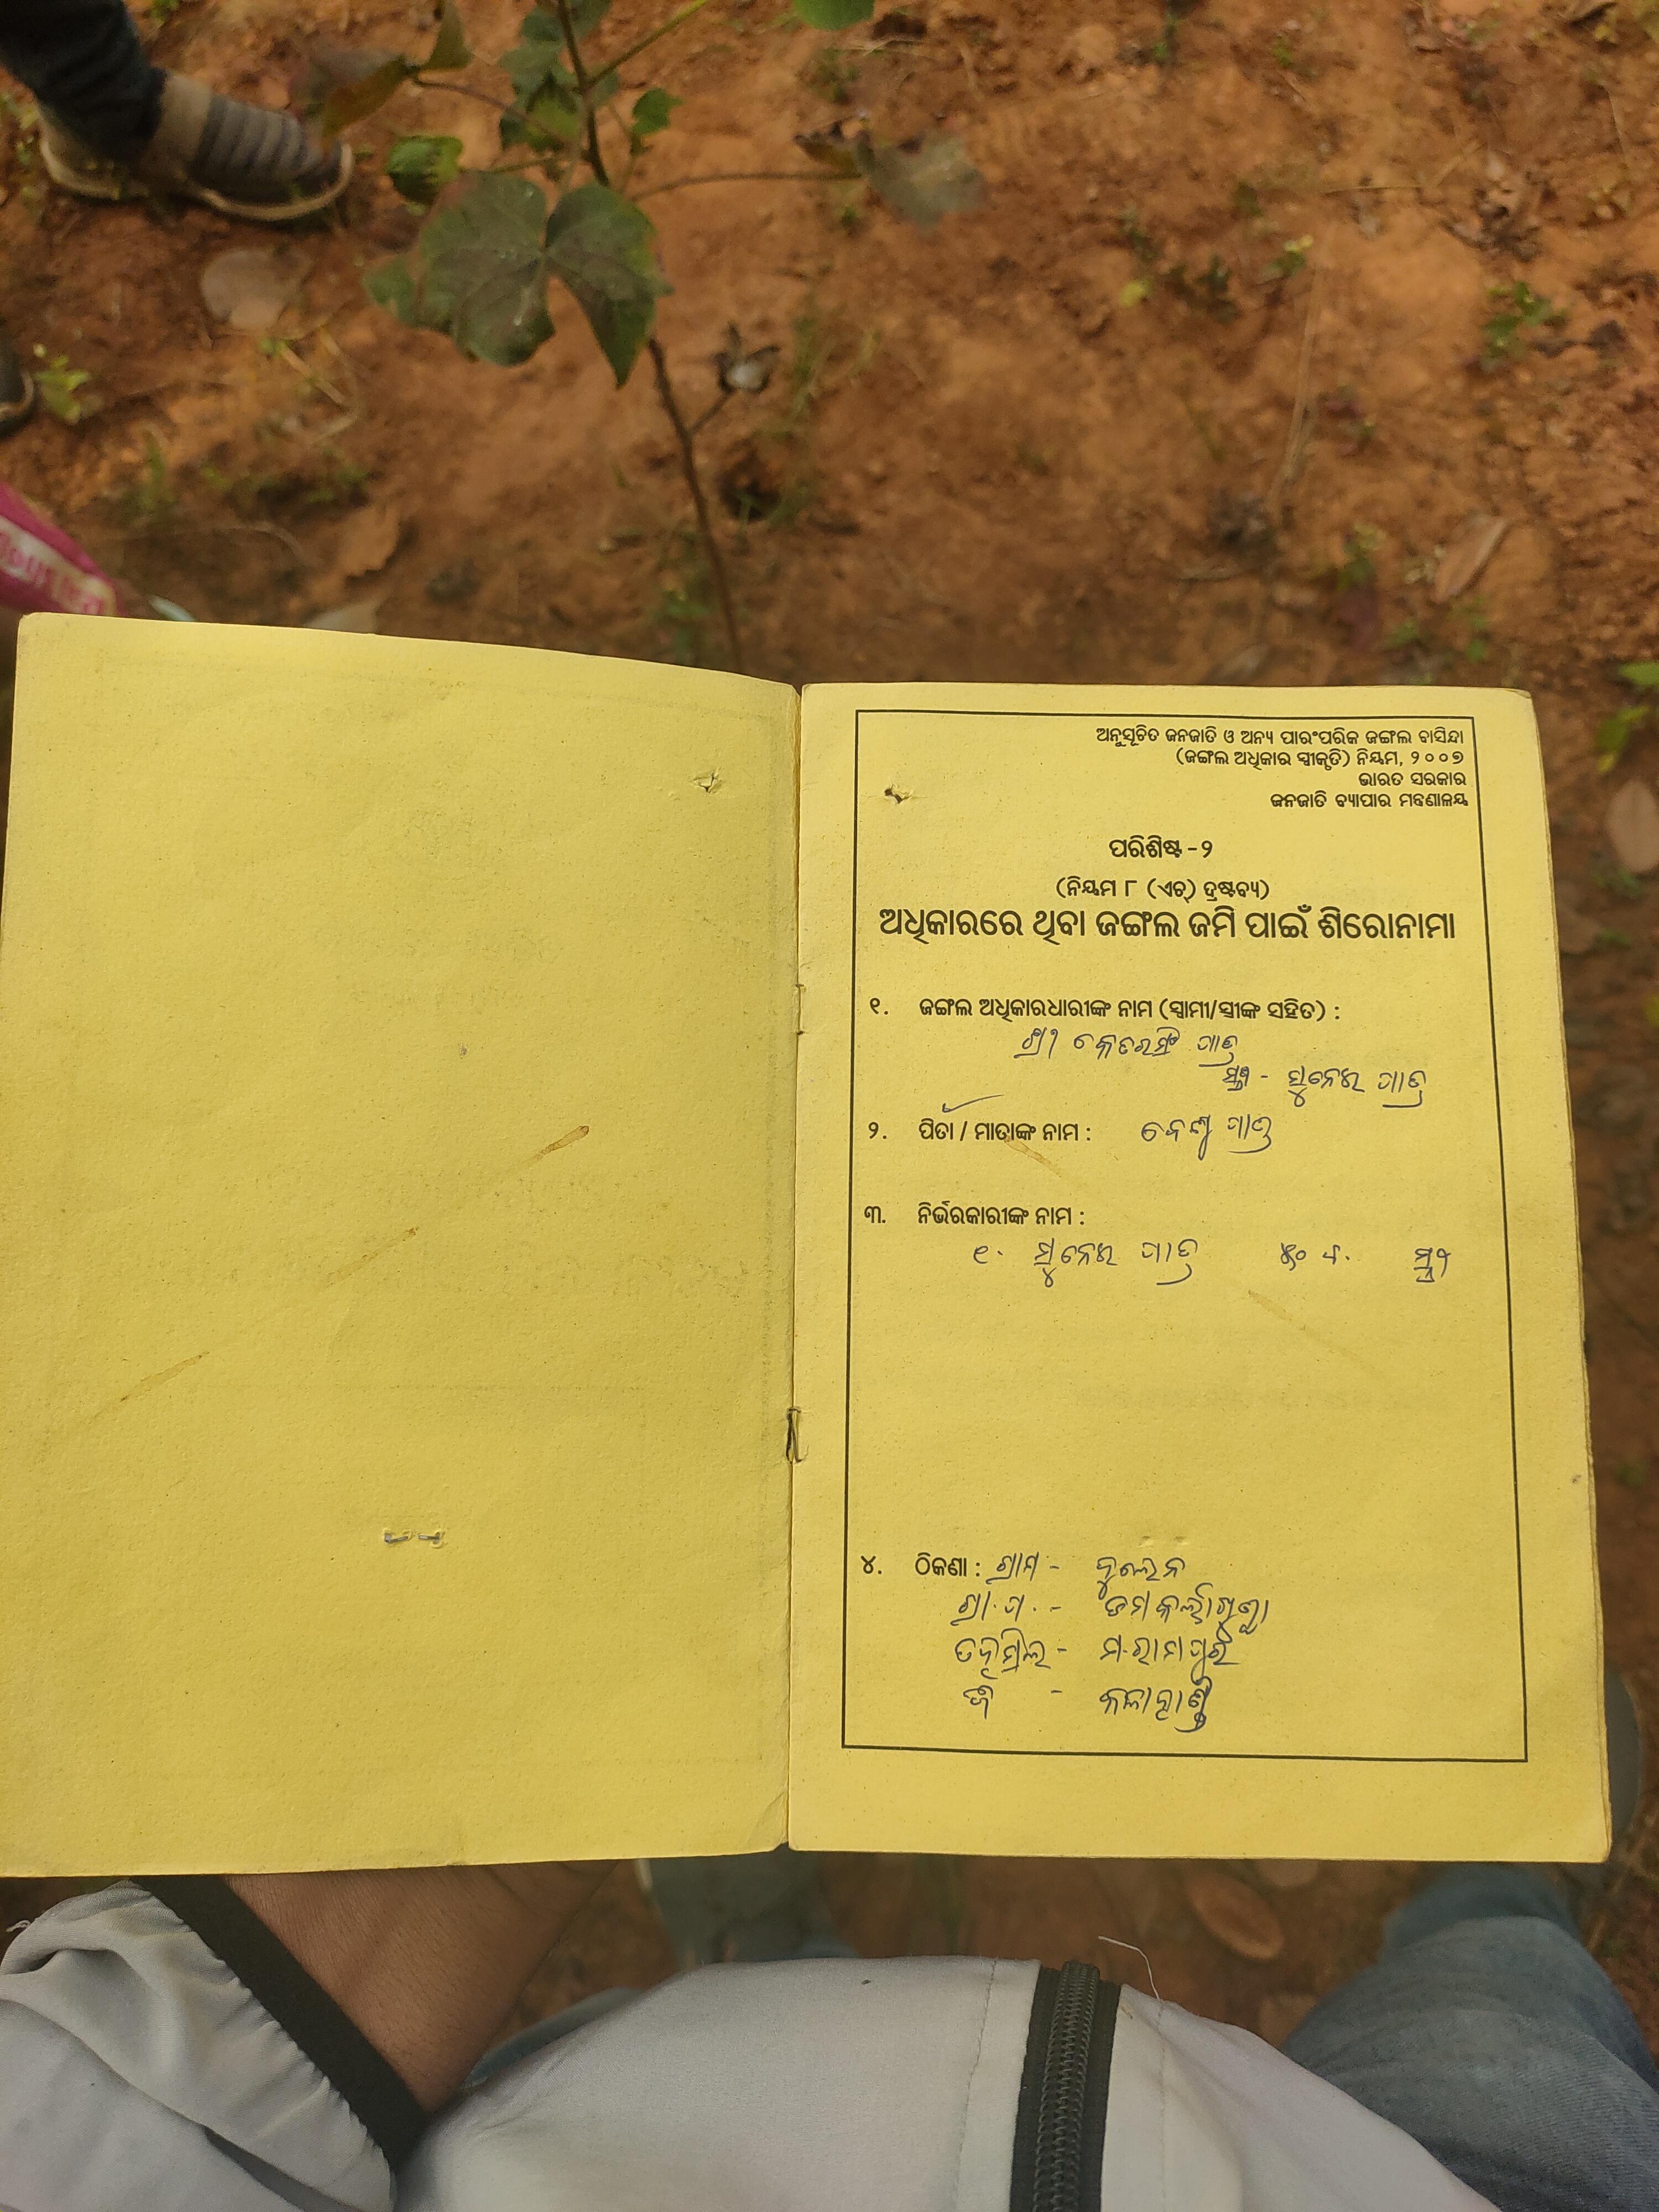 ଅନୁସୂଚିତ ଜନଜାତି ଓ ଅନ୍ୟ ପାରଂପରିକ ଜଙ୍ଗଲ ବାସିନ୍ଦା
(ଜଙ୍ଗଲ ଅଧିକାର ସ୍ୱୀକୃତି) ନିୟମ, ୨୦୦୭
ଭାରତ ସରକାର
ଜନଜାତି ବ୍ୟାପାର ମନ୍ତ୍ରଣାଳୟ
ପରିଶିଷ୍ଟ -୨
(ନିୟମ ୮ (ଏଚ୍) ଦ୍ରଷ୍ଟବ୍ୟ)
ଅଧିକାରରେ ଥିବା ଜଙ୍ଗଲ ଜମି ପାଇଁ ଶିରୋନାମା
୧. ଜଙ୍ଗଲ ଅଧିକାରଧାରୀଙ୍କ ନାମ (ସ୍ୱାମୀ/ସ୍ତ୍ରୀଙ୍କ ସହିତ) :
ଶ୍ରୀ
ସ୍ତ୍ରୀ -
୨. ପିତା / ମାତାଙ୍କ ନାମ :
୩. ନିର୍ଭରକାରୀଙ୍କ ନାମ :
୧. ସ୍ତ୍ରୀ
୪. ଠିକଣା : ଗ୍ରାମ -
ଗ୍ରା.ପ. -
ତହସିଲ - ମ.ରାମପୁର
ଜି - କଳାହାଣ୍ଡି